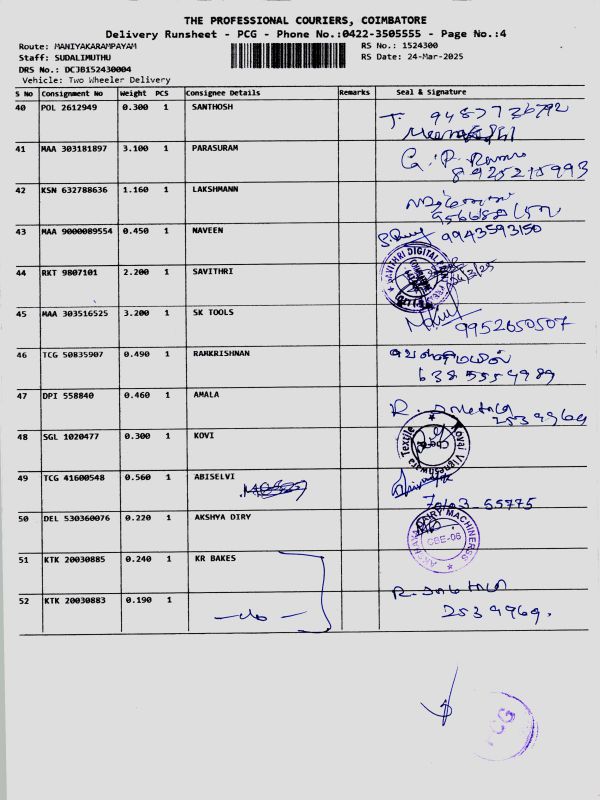 THE PROFESSIONAL COURIERS, COIMBATORE
Delivery Runsheet - PCG - Phone No.:0422-3505555 - Page No.:4
Route: MANIYAKARAMPAYAM
RS No.: 1524300
Staff: SUDALIMUTHU
RS Date: 24-Mar-2025
DRS No.: DCJB152430004
Vehicle: Two Wheeler Delivery
S No Consignment No Weight PCS Consignee Details Remarks Seal & Signature
40 POL 2612949 0.300 1 SANTHOSH
41 MAA 303181897 3.100 1 PARASURAM
8925215993
42 KSN 632788636 1.160 1 LAKSHMANN
43 MAA 9000089554 0.450 1 NAVEEN 9943593150
44 RKT 9807101 2.200 1 SAVITHRI
45 MAA 303516525 3.200 1 SK TOOLS
9952650507
46 TCG 50835907 0.490 1 RAMKRISHNAN
6385554989
47 DPI 558840 0.460 1 AMALA
2539969
48 SGL 1020477 0.300 1 KOVI
Kovai Vigneshwara Textile
49 TCG 41600548 0.560 1 ABISELVI
50 DEL 530360076 0.220 1 AKSHYA DIRY
AKSHAYA DAIRY MACHINERSS
CBE-06
51 KTK 20030885 0.240 1 KR BAKES
52 KTK 20030883 0.190 1
-do-
2539969.
PCG